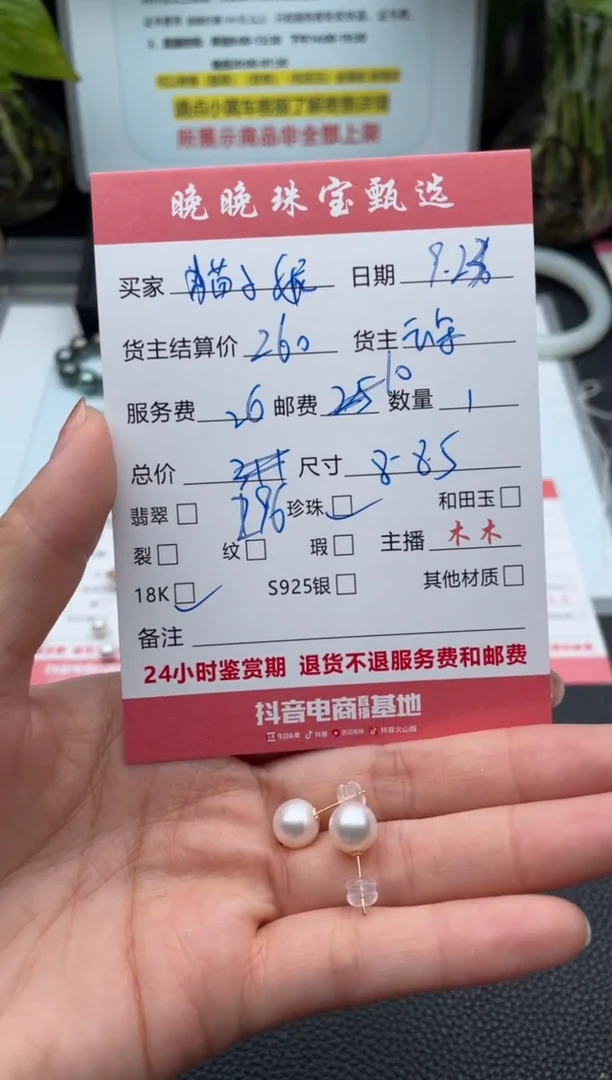 所展示商品非全部上架
晚晚珠宝甄选
买家 日期 9.2
货主结算价 260 货主
服务费 26 邮费 10 数量 1
总价 296 尺寸 8-8.5
翡翠 珍珠 和田玉
裂 纹 瑕 主播 木木
18K S925银 其他材质
备注
24小时鉴赏期 退货不退服务费和邮费
抖音电商直播基地
今日头条 抖音 西瓜视频 抖音火山版